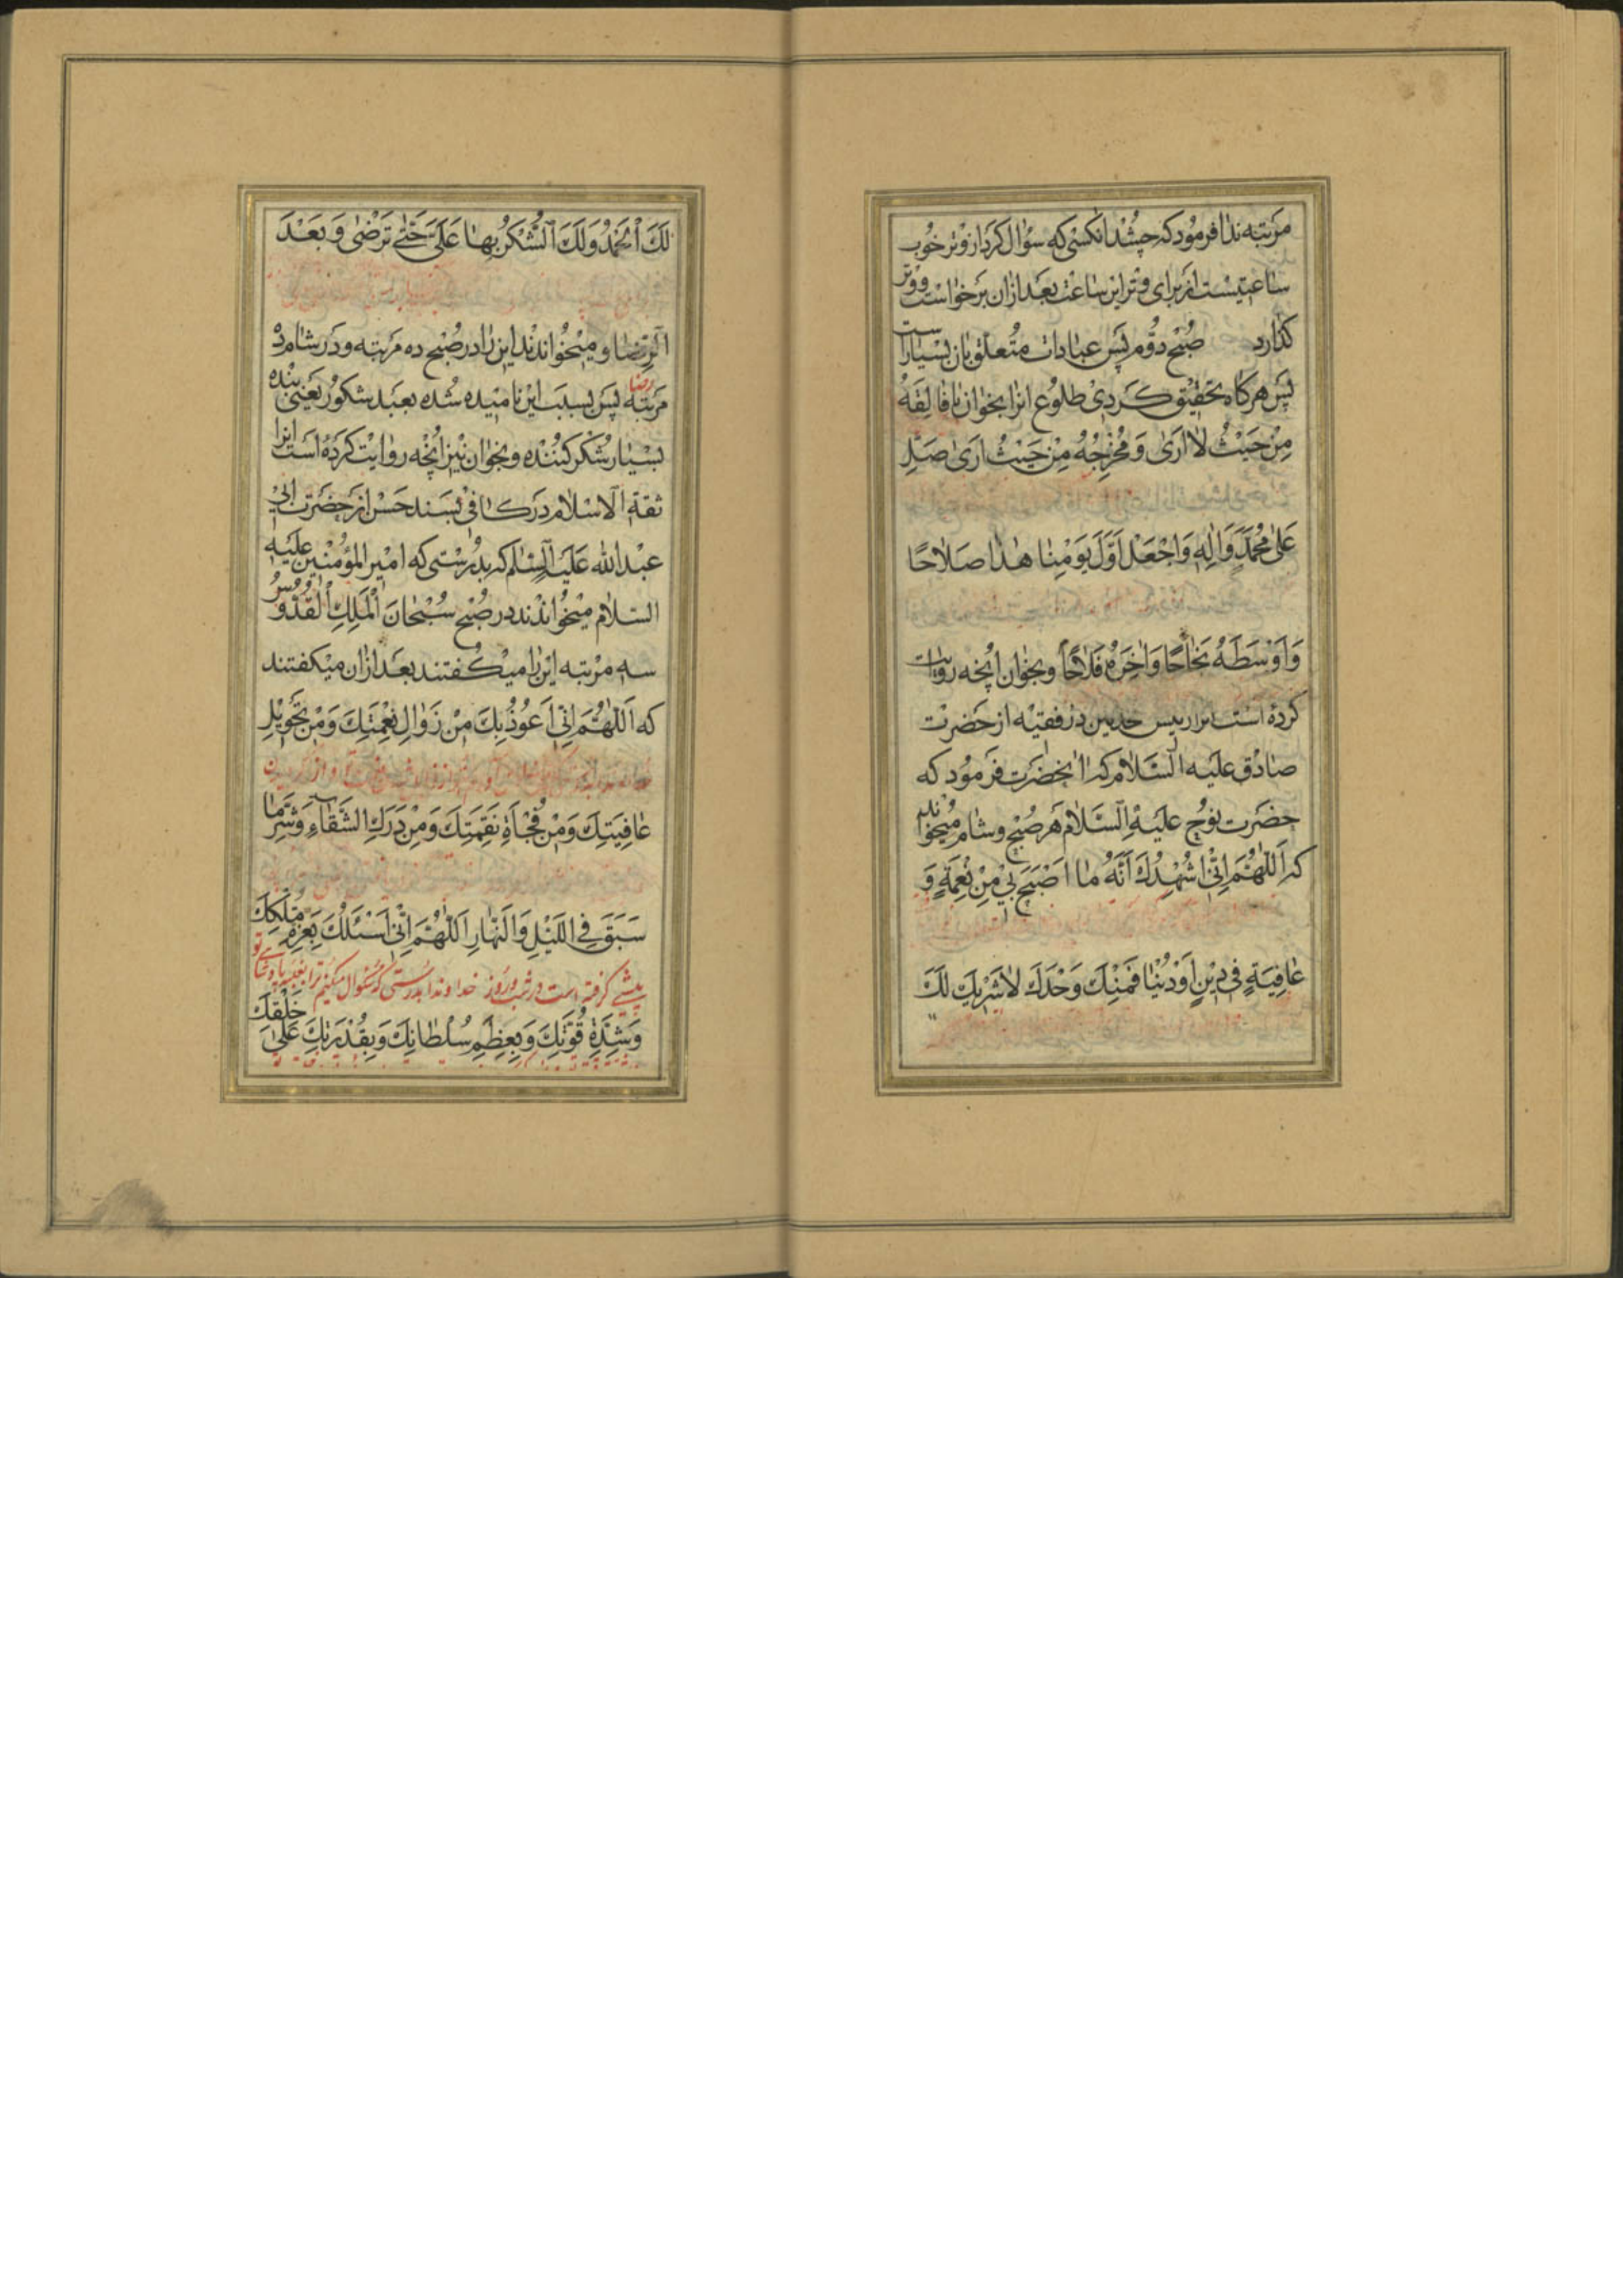 مرتبه ندا فرمود که چشد انکسی که سؤال کرد از وتر خوب
ساعتیست از برای وتر این ساعت بعد از ان برخواست و وتر
کذارد صبح دوم پس عبادات متعلق بان بسیار است
پس هرکاه تحقیق کردی طلوع انرا بخوان یا فالقه
مِنْ حَیْثُ لا اَریٰ وَ مُخْرِجُهُ مِنْ حَیْثُ اَریٰ صَلِّ
عَلیٰ مُحَمَّدٍ وَ الِهِ وَاجْعَلْ اَوَّلَ یَوْمِنا هٰذا صَلاحًا
وَ اَوْسَطَهُ نَجاحًا وَ اخِرَهُ فَلاحًا و بخوان انچه روایت
کرده است انرا رییس محدثین در فقیه از حضرت
صادق علیه السلام که انحضرت فرمود که
حضرت نوح علیه السلام هر صبح و شام میخواندند
که اَللّٰهُمَّ اِنّی اُشْهِدُكَ اَنَّهُ ما اَصْبَحَ بی مِنْ نِعْمَةٍ وَ
عافِیَةٍ فی دینٍ اَوْ دُنْیا فَمِنْكَ وَحْدَكَ لا شَریكَ لَكَ
لَكَ الْحَمْدُ وَ لَكَ الشُّكْرُ بِها عَلَیَّ حَتّیٰ تَرْضیٰ وَ بَعْدَ
الرِّضا و میخواندند این را در صبح ده مرتبه و در شام ده
رضا
مرتبه پس بسبب این نامیده شده بعبد شکور یعنی بنده
بسیار شکر کننده و بخوان نیز انچه روایت کرده است انرا
ثقة الاسلام در کافی بسند حسن از حضرت ابی
عبدالله علیه السلام که بدرستی که امیر المؤمنین علیه
السلام میخواندند در صبح سُبْحانَ الْمَلِكِ الْقُدُّوسِ
سه مرتبه این را میکفتند بعد از ان میکفتند
که اَللّٰهُمَّ اِنّی اَعُوذُ بِكَ مِنْ زَوالِ نِعْمَتِكَ وَ مِنْ تَحْویلِ
عافِیَتِكَ وَ مِنْ فُجْأَةِ نَقِمَتِكَ وَ مِنْ دَرَكِ الشَّقاءِ وَ شَرِّ ما
سَبَقَ فِی اللَّیْلِ وَ النَّهارِ اَللّٰهُمَّ اِنّی اَسْئَلُكَ بِعِزَّةِ مُلْكِكَ
پیشی کرفته است در شب و روز خداوندا بدرستی که سئوال میکنم ترا بغلبه پادشاهی تو
وَ شِدَّةِ قُوَّتِكَ وَ بِعِظَمِ سُلْطانِكَ وَ بِقُدْرَتِكَ عَلیٰ خَلْقِكَ